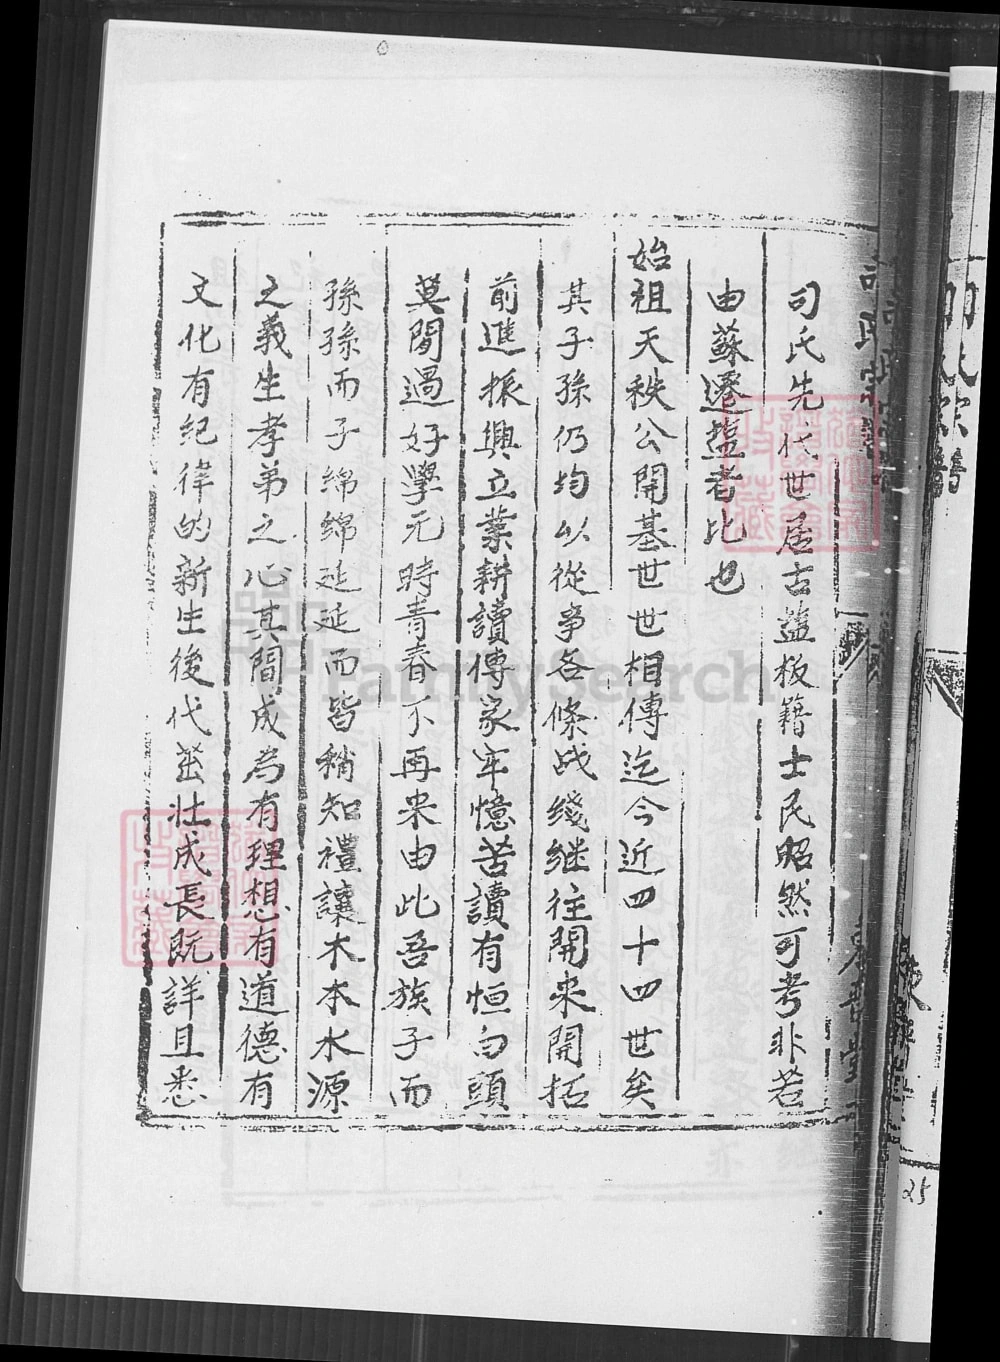 司氏宗譜
司氏先代世居古盐板籍士民昭然可考非若
由蘇遷盐者比也
始祖天秩公開基世世相傳迄今近四十四世矣
其子孫仍均以從爭各條战綫继往開来開拓
前進振興立業耕讀傳家牢憶苦讀有恒白頭
莫閒過好學元時青春不再来由此吾族子而
孫孫而子绵绵延延而皆稍知禮讓木本水源
之義生孝弟之心其間成為有理想有道德有
文化有纪律的新生後代茁壮成長既詳且悉
25
FamilySearch